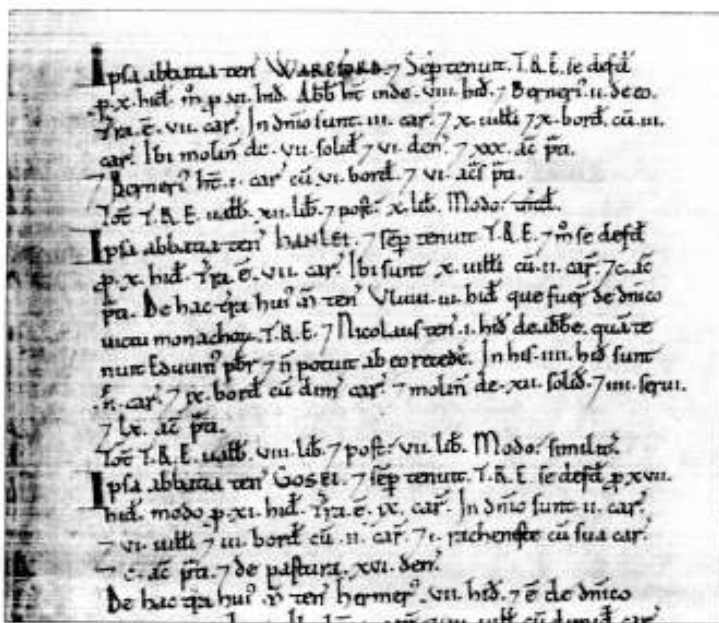 Ipsa abbatia ten̄ WAREFORD. ⁊ Sēp tenuit. T.R.E. se defd̄
p. x. hid̄. m̊ p. vi. hid̄. Abb̄ ht̄ inde. viii. hid̄. ⁊ Berneri᷒. ii. de eo.
Tr̄a. ē. vii. car̄. In dn̄io sunt. iii. car̄. ⁊ x. uilli ⁊ x. bord̄. cū. iii.
car̄. Ibi molin̄ de. vii. solid̄ ⁊ vi. den̄. ⁊ xxx. ac̄ p̄ta.
⁊ Berneri᷒ ht̄. i. car̄ cū. vi. bord̄. ⁊ vi. ac̄s p̄ta.
Tot̄ T.R.E. ualb̄. xii. lib̄. ⁊ post᷒. x. lib̄. Modo.
Ipsa abbatia ten̄ HANLEI. ⁊ sēp tenuit T.R.E. ⁊ m̊ se defd̄
p. x. hid̄. Tr̄a. ē. vii. car̄. Ibi sunt. x. uilli cū. ii. car̄. ⁊ c. ac̄
p̄ta. De hac tr̄a hui᷒ m̄ ten̄ Vluui. iii. hid̄ que fuer̄ de dn̄ico
uictu monachoꝝ. T.R.E. ⁊ Nicolaus ten̄. i. hid̄ de abb̄e. quā te
nuit Eduuin᷒ pb̄r ⁊ n̄ potuit ab eo recedē. In his. iiii. hid̄ sunt
ii. car̄. ⁊ ix. bord̄ cū dim̄ car̄. ⁊ molin̄ de. xii. solid̄. ⁊ iiii. serui.
⁊ lx. ac̄ p̄ta.
Tot̄ T.R.E. ualb̄. viii. lib̄. ⁊ post᷒. vii. lib̄. Modo᷒ similit̄.
Ipsa abbatia ten̄ GOSEI. ⁊ sēp tenuit. T.R.E. se defd̄ p xvii.
hid̄. modo p. xi. hid̄. Tr̄a. ē. ix. car̄. In dn̄io sunt. ii. car̄.
⁊ vi. uilli ⁊ iii. bord̄ cū. ii. car̄. ⁊ i. rachenestre cū sua car̄.
⁊ c. ac̄ p̄ta. ⁊ de pastura. xvi. den̄.
De hac tr̄a hui᷒ m̄ ten̄ hermer᷒. vii. hid̄. ⁊ ē de dn̄ico